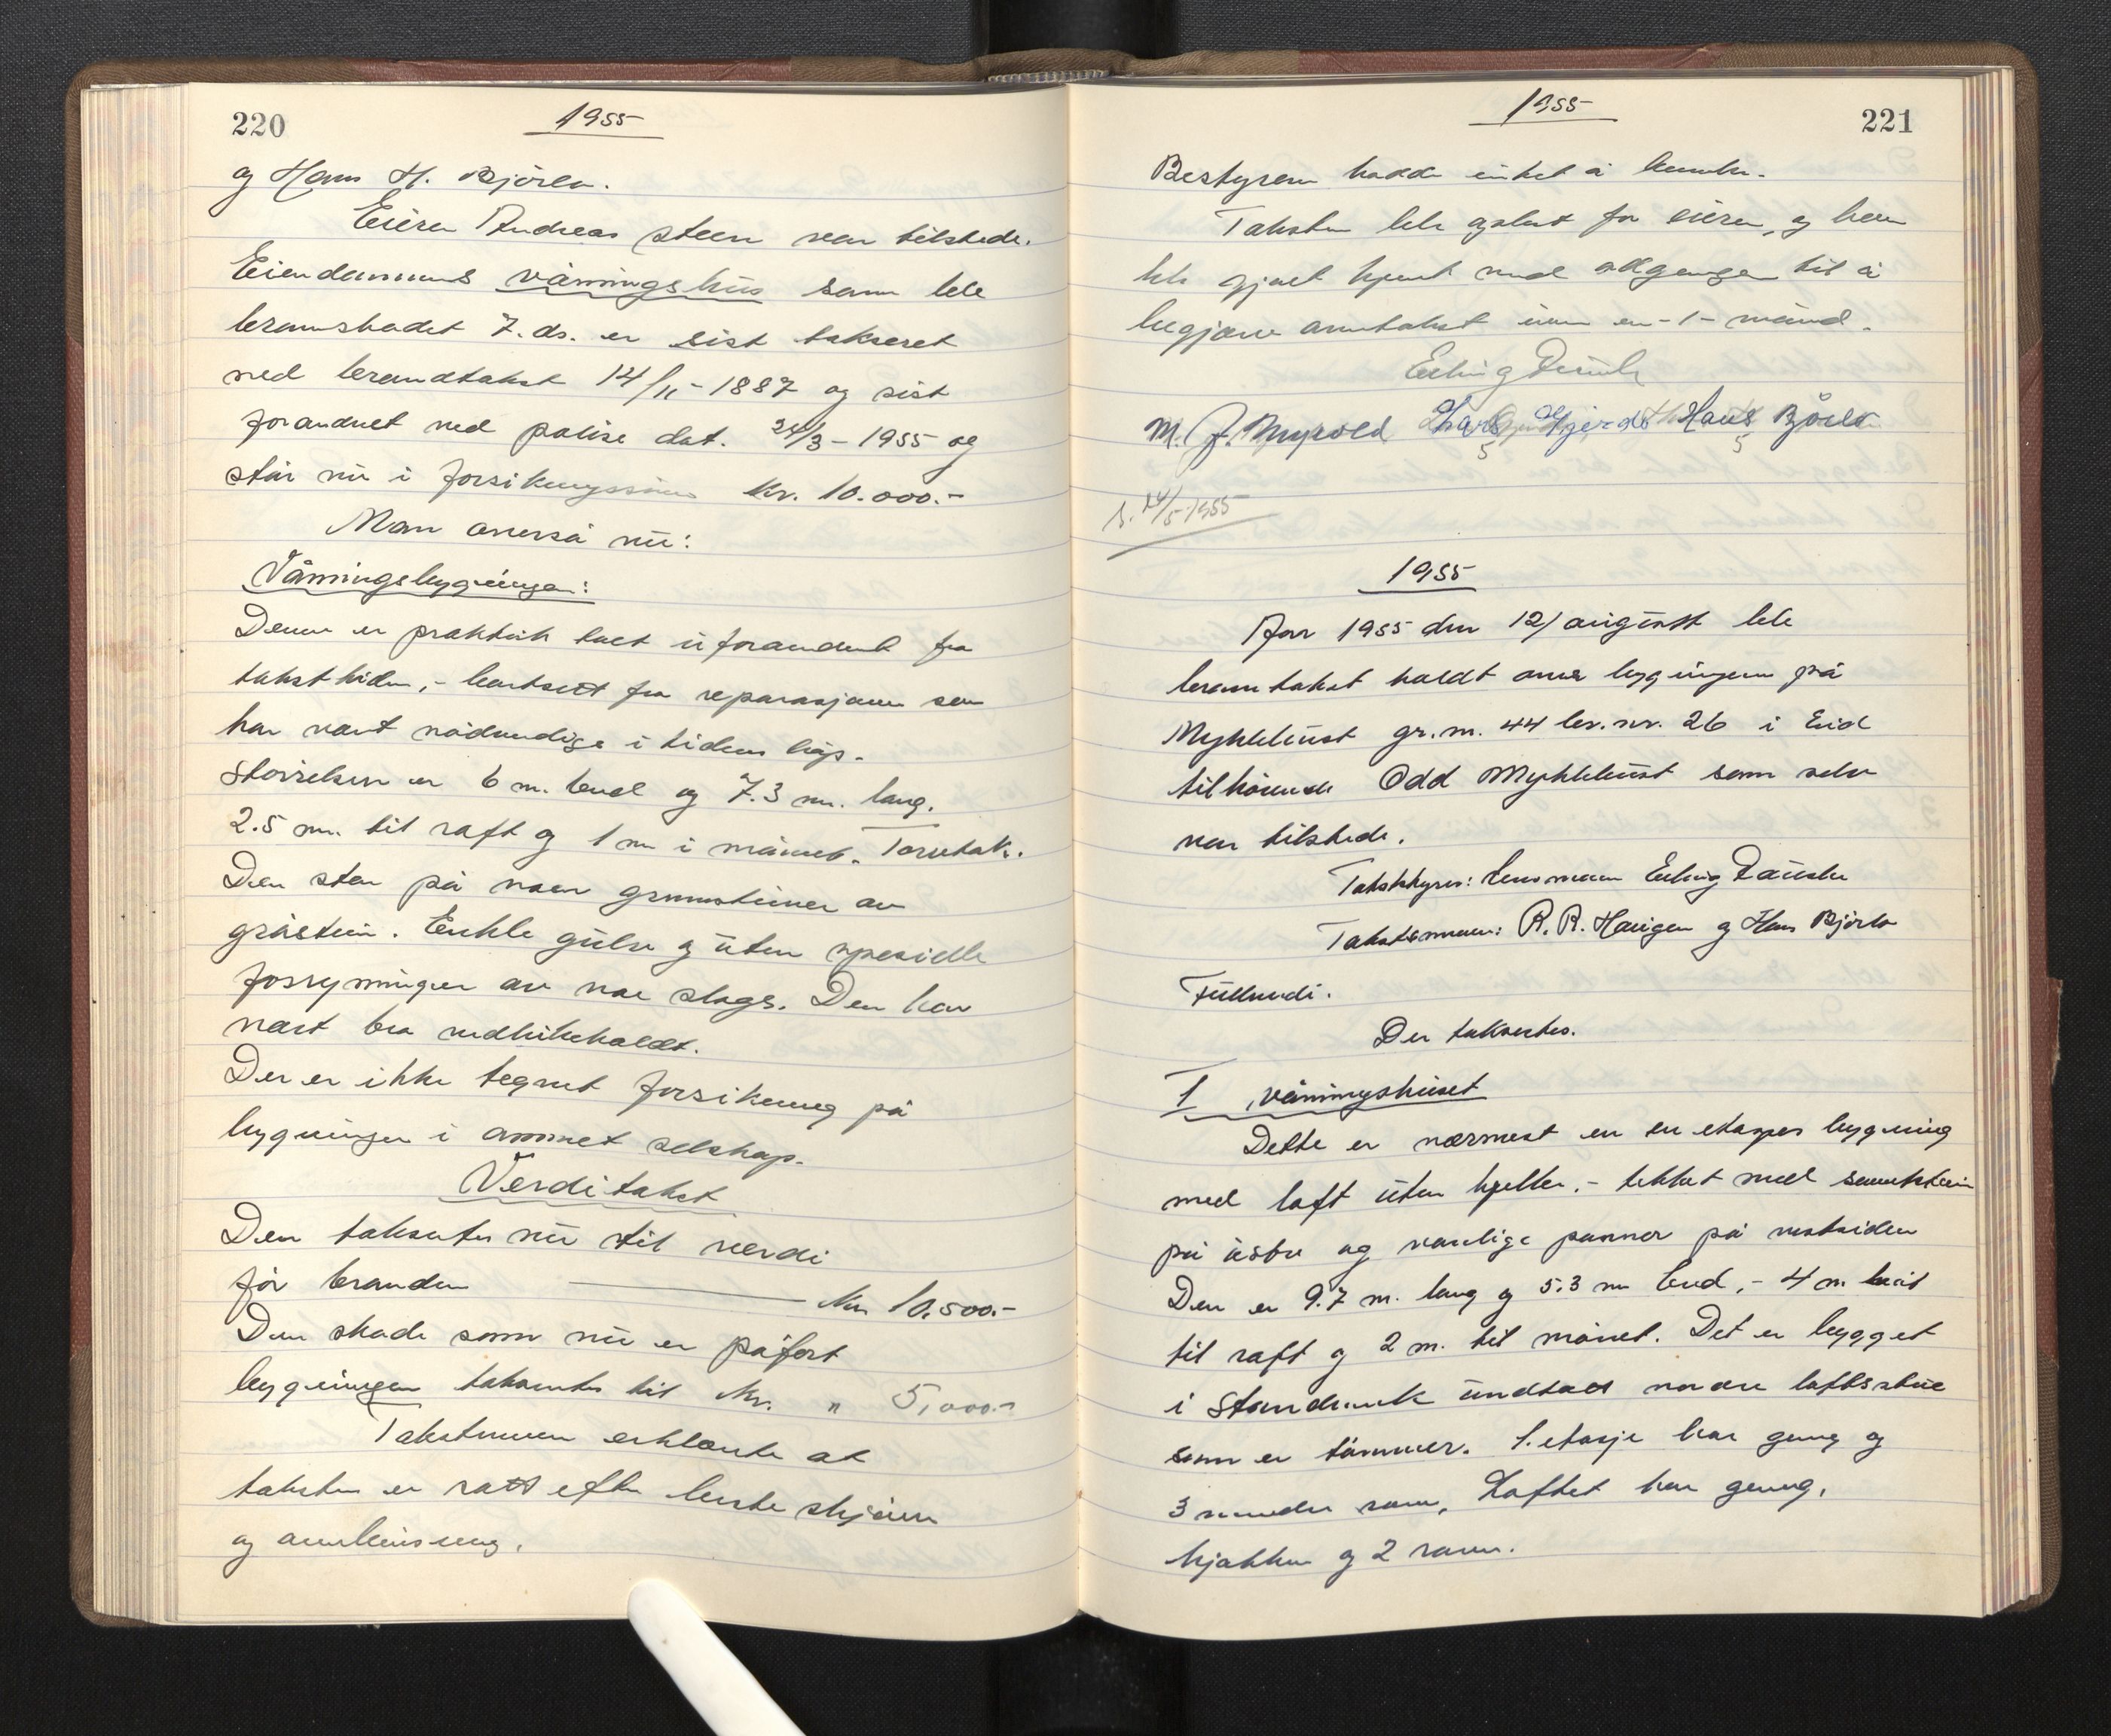 220
1955
og Hans H. Bjørlo.
Eieren Andreas Steen var tilstede.
Eiendommens våningshus som ble
brannskadet 7. ds. er sist taksert
ved brandtakst 14/11-1887 og sist
forandret ved polise dat. 24/3-1955 og
står nu i forsikringssum kr. 10.000.-
Man anerså nu:
Våningsbygningen:
Denne er praktisk talt uforandret fra
taksttiden, - bortsett fra reparasjoner som
har vært nødvendige i tidens løp.
Størrelsen er 6 m. bred og 7.3 m. lang.
2.5 m. til raft og 1 m i mønet. Torvtak.
Den står på noen grunnsteiner av
gråstein. Enkle gulv og uten spesielle
forsyninger av noe slags. Den har
vært bra vedlikeholdt.
Der er ikke tegnet forsikring på
bygningen i annet selskap.
Verditakst
Den takseres nu til verdi
før branden kr 10.500.-
Den skade som nu er påført
bygningen takseres til kr. " 5,000.-
Takstmennene erklærte at
taksten er satt efter beste skjønn
og overbevisning.
221
1955
Bestyreren hadde intet å bemerke.
Taksten ble oplest for eieren, og han
ble gjort kjent med adgangen til å
begjære omtakst innen en -1- måned.
Erling Dausle
M. J. Myrold Lars Gjerde Hans Bjørlo
S. 24/5-1955
1955
Aar 1955 den 12/ august ble
branntakst holdt over bygningene på
Myklebust gr.nr. 44 br.nr. 26 i Eid
tilhørende Odd Myklebust som selv
var tilstede.
Takstbestyrer: lensmann Erling
Takstmenn: R. R. Haugen og Hans Bjørlo
Fullverdi.
Der taksertes.
I våningshuset
Dette er nærmest en en etasjes bygning
med loft uten kjeller, - tekket med sementstein
på østre og vanlige panner på vestsiden
Den er 9.7 m. lang og 5.3 m bred, - 4 m. høit
til raft og 2 m. til mønet. Det er bygget
i Standverk undtatt nordre loftsstue
som er tømmer. 1. etasje har gang og
3 mindre rom, Loftet har gang,
kjøkken og 2 rom.